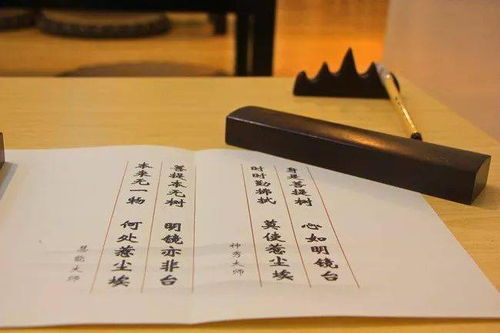 身是菩提树 心如明镜台
时时勤拂拭 莫使惹尘埃
神秀大师
菩提本无树 明镜亦非台
本来无一物 何处惹尘埃
慧能大师